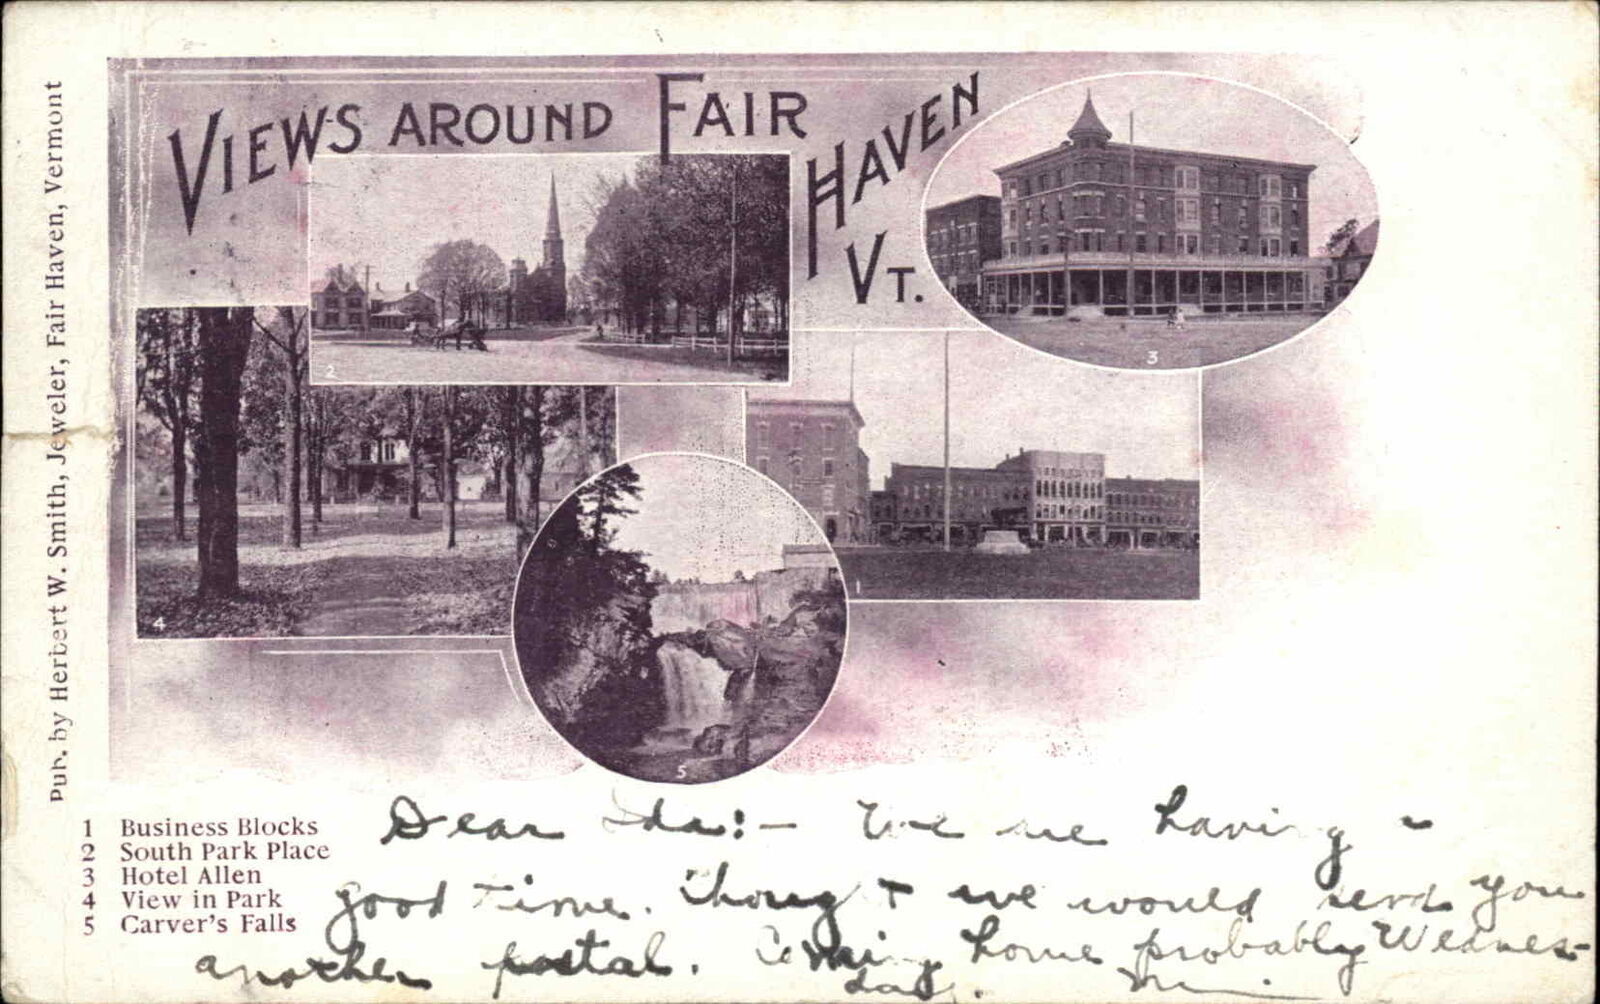 VIEWS AROUND FAIR HAVEN VT.
Pub. by Herbert W. Smith, Jeweler, Fair Haven, Vermont
2
3
4
1
5
1 Business Blocks
2 South Park Place
3 Hotel Allen
4 View in Park
5 Carver's Falls
Dear Ida:— We are having a
good time. Thought we would send you
another postal. Coming home probably Wednes-
day.